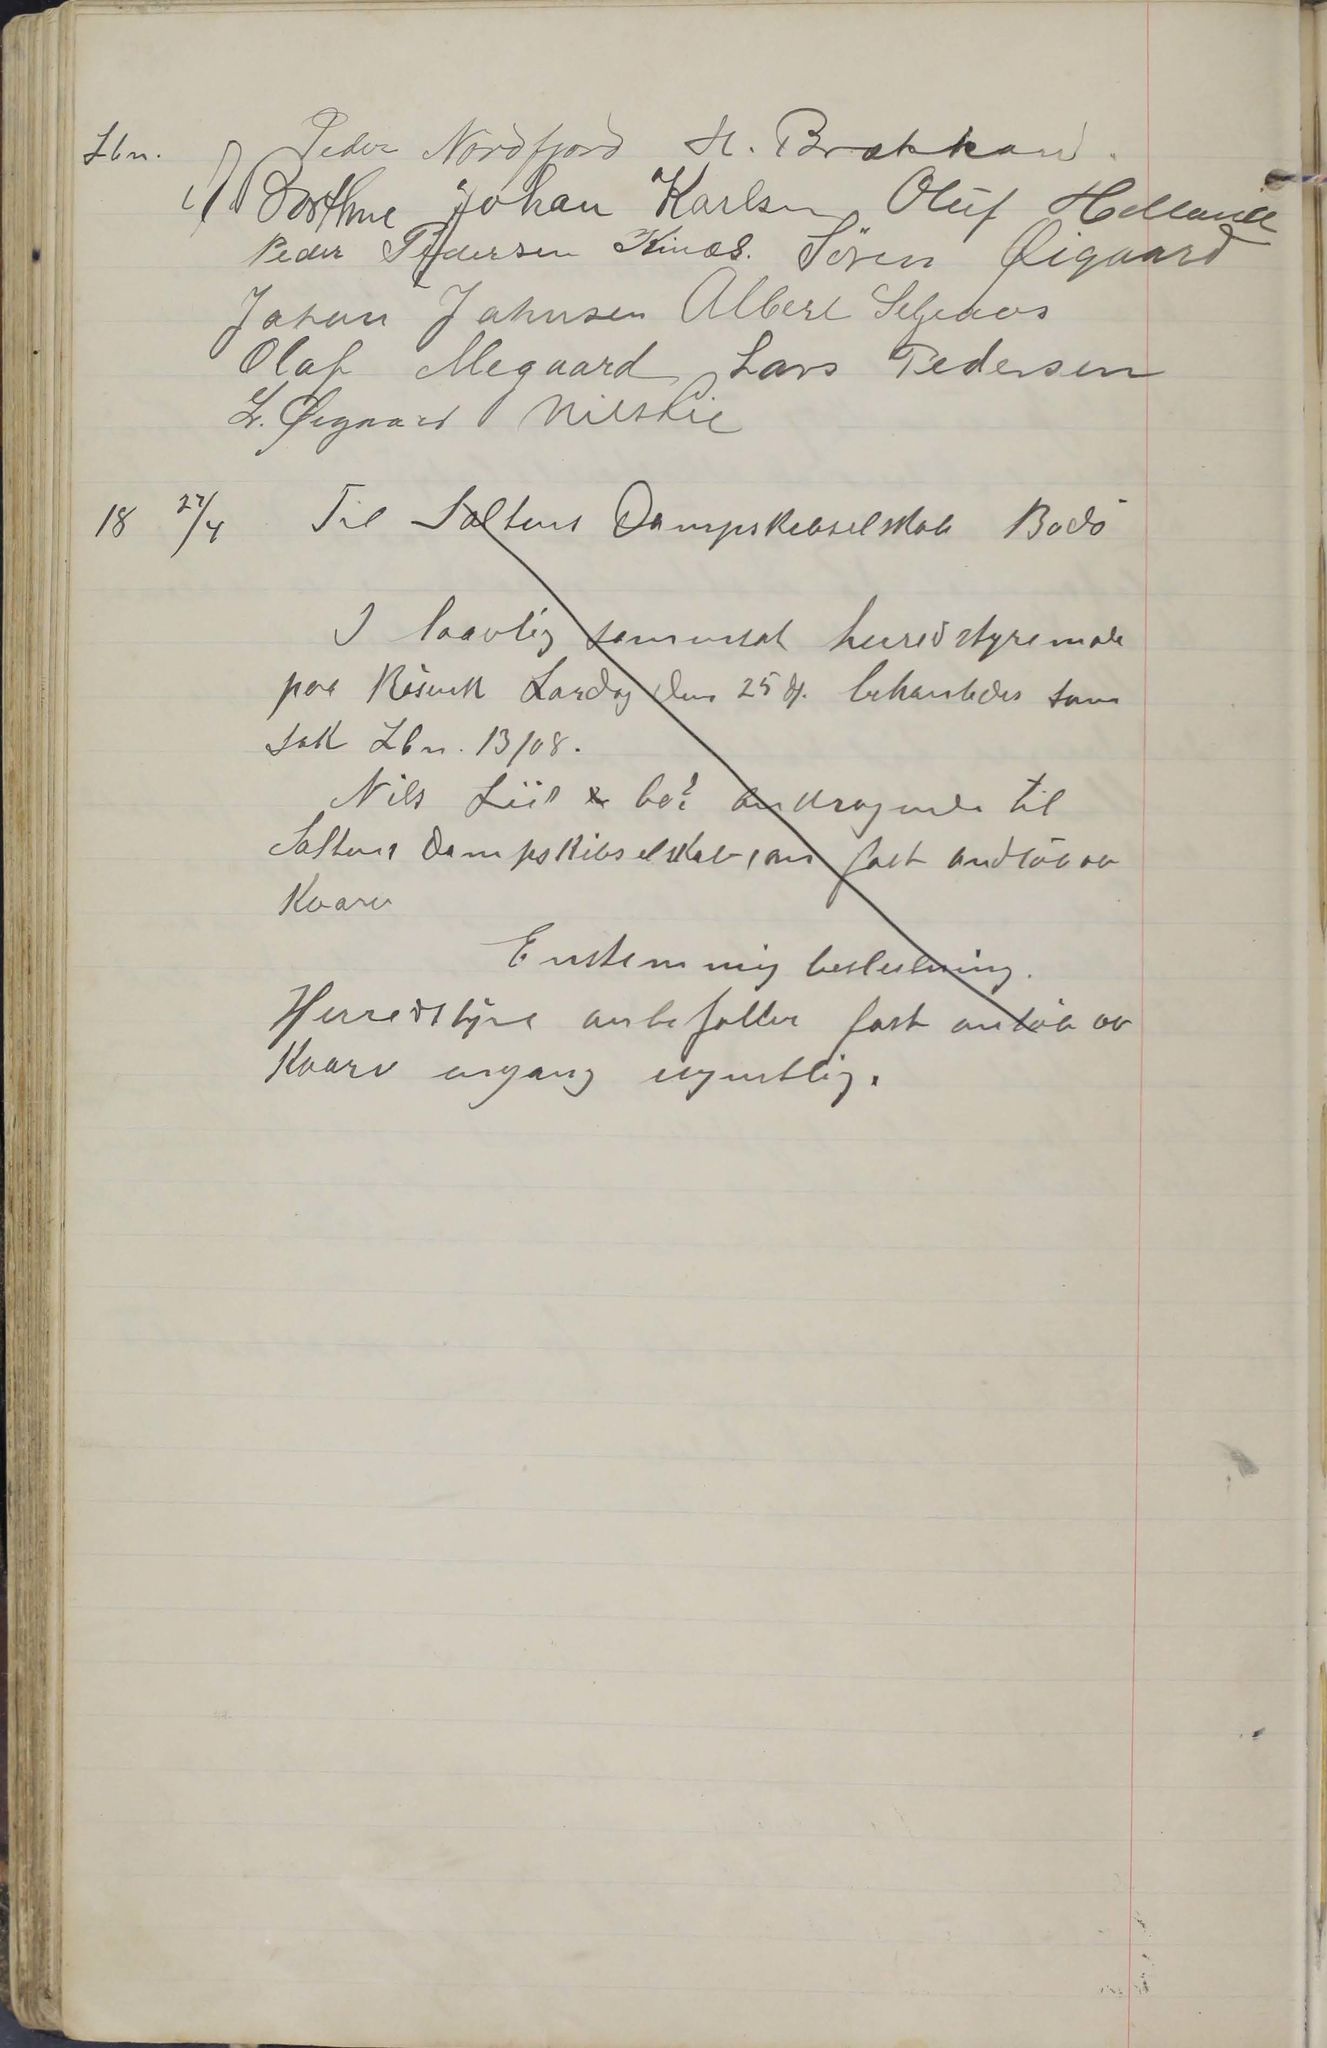 Lbn. Peder Nordfjord H. Brækkan.
Johan Karlsen Oluf Helland
Peder Pedersen Kines. Sören Øigaard
Johan Johnsen Albert Seljeaas
Olaf Megaard Lars Pedersen
L. Øigaard Nils Lie
18 27/4 Til Saltens Dampskibsselskab Bodö
I laavlig sammensat herredstyremøde
paa Rösvik Lørdag den 25 ds. behandledes som
sak Lbn. 13/08.
Nils Liis andragende til
Saltens Dampskibsselskab om fast anlöb av
Kvarv
Enstemmig beslutning.
Herredstyre anbefaller fast anlöb av
Kvarv engang ugentlig.